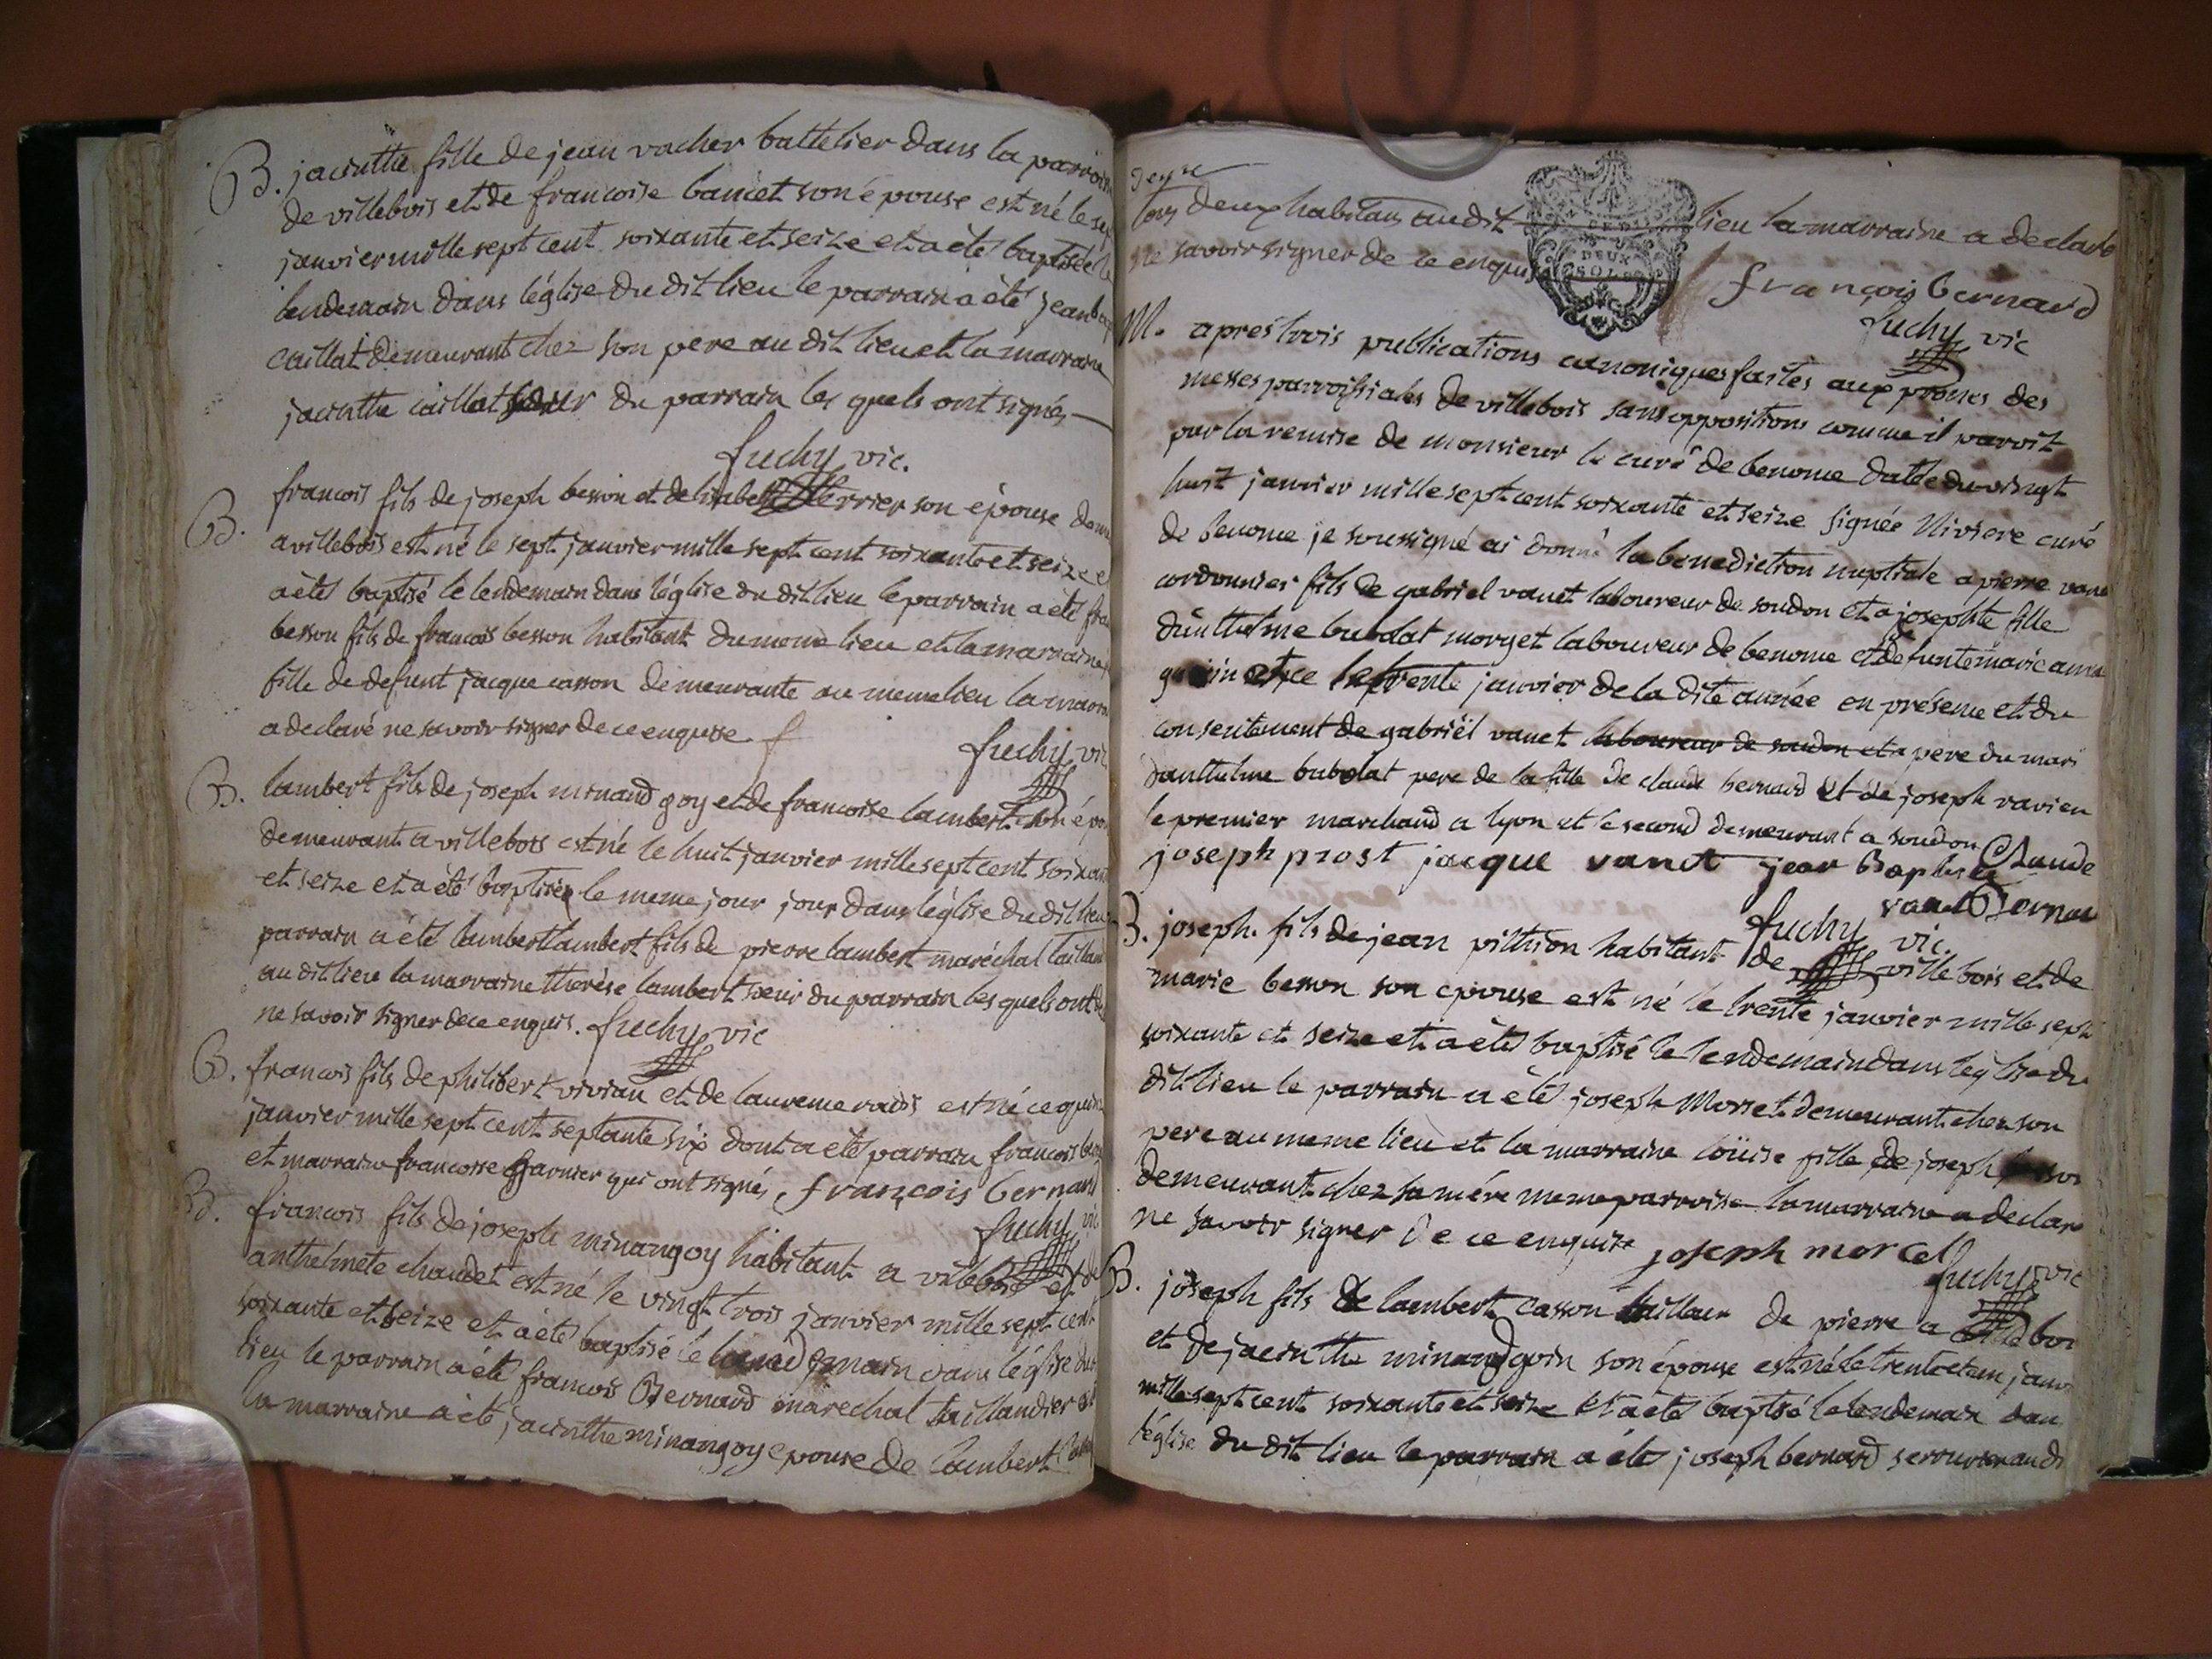 B. jacinthe fille de jean vacher battelier dans la parrois
de villebois et de francoise bancet son épouse est né le sep
janvier mille sept cent soixante et seize et a été baptisée le
lendemain dans l'église du dit lieu le parrain a été jean bap
caillat demeurant chez son pere au dit lieu et la marraine
jacinthe caillat soeur du parrain les quels ont signés
fuchy vic.
B. francois fils de joseph besson et de perrier son épouse dem
a villebois est né le sept janvier mille sept cent soixante et seize e
a été baptisé le lendemain dans l'église du dit lieu le parrain a été fra
besson fils de francois besson habitant du meme lieu et la marraine
fille de defunt jacque casson demeurante au meme lieu la marra
a declaré ne savoir signer de ce enquise
fuchy vic
B. lambert fils de joseph minand goy et de francoise lambert son épou
demeurant a villebois est né le huit janvier mille sept cent soixan
et seize et a été baptisée le meme jour jour dans l'église du dit lieu
parrain a été lambert lambert fils de pierre lambert maréchal taillan
au dit lieu la marraine therèse lambert soeur du parrain les quels ont de
ne savoir signer de ce enquis. fuchy vic
B. francois fils de philibert vivian et de laurence radis est né ce quin
janvier mille sept cent septante six dont a été parrain francois bern
et marraine francoise garnier qui ont signés, françois bernard
fuchy vic
B. francois fils de joseph minangoy habitant a villebois et de
anthelmete chaudet est né le vingt trois janvier mille sept cent
soixante et seize et a été baptisé le lendemain dans l'église du
lieu le parrain a été francois Bernard marechal taillandier et
la marraine a été jacinthe minangoy epouse de lambert
tous deux habitans au dit lieu la marraine a declaré
ne savoir signer de ce enquis
DEUX
SOLS
françois bernard
fuchy vic
M. apres trois publications canoniques faites aux prones des
messes parroissiales de villebois sans oppositions comme il paroit
par la remise de monsieur le curé de benonce datée du vingt
huit janvier mille sept cent soixante et seize signée Niviere curé
de benonce je soussigné ai donné la benediction nuptiale a pierre vane
cordonnier fils de gabriel vanet laboureur de soudon et a josephte fille
d'anthelme bubdat morget laboureur de benonce et de defunte marie anne
ce le trente janvier de la dite année en présence et du
consentement de gabriël vanet laboureur de soudon et a pere du mari
d'anthelme bubdat pere de la fille de claude bernard et de joseph ravier
le premier marchand a lyon et le second demeurant a soudon Claude
joseph prost jacque vanet jean Baptiste
vanet Bernar
fuchy vic.
B. joseph. fils de jean pithion habitant de villebois et de
marie besson son epouse est né le trente janvier mille sept
soixante et seize et a été baptisé le lendemain dans l'église du
dit lieu le parrain a été joseph Morset demeurant chez son
pere au meme lieu et la marraine loüise fille de joseph
demeurant chez sa mére meme parroisse la marraine a declaré
ne savoir signer de ce enquise joseph morcel
fuchy vic
B. joseph fils de lambert casson tailleur de pierre a villeboi
et de jacinthe minandgoin son épouse est né le trente et un janv
mille sept cent soixante et seize et a été baptisé le lendemain dan
l'église du dit lieu le parrain a été joseph bernard serrurier au di